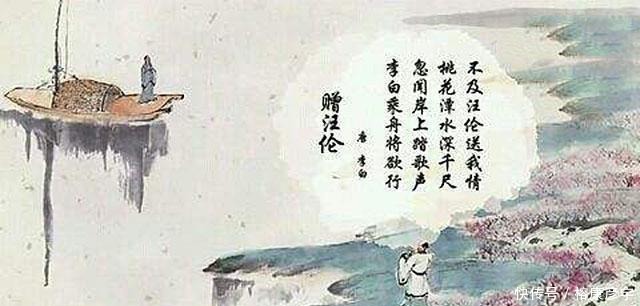 赠汪伦
唐 李白
李白乘舟将欲行
忽闻岸上踏歌声
桃花潭水深千尺
不及汪伦送我情
快传号 /